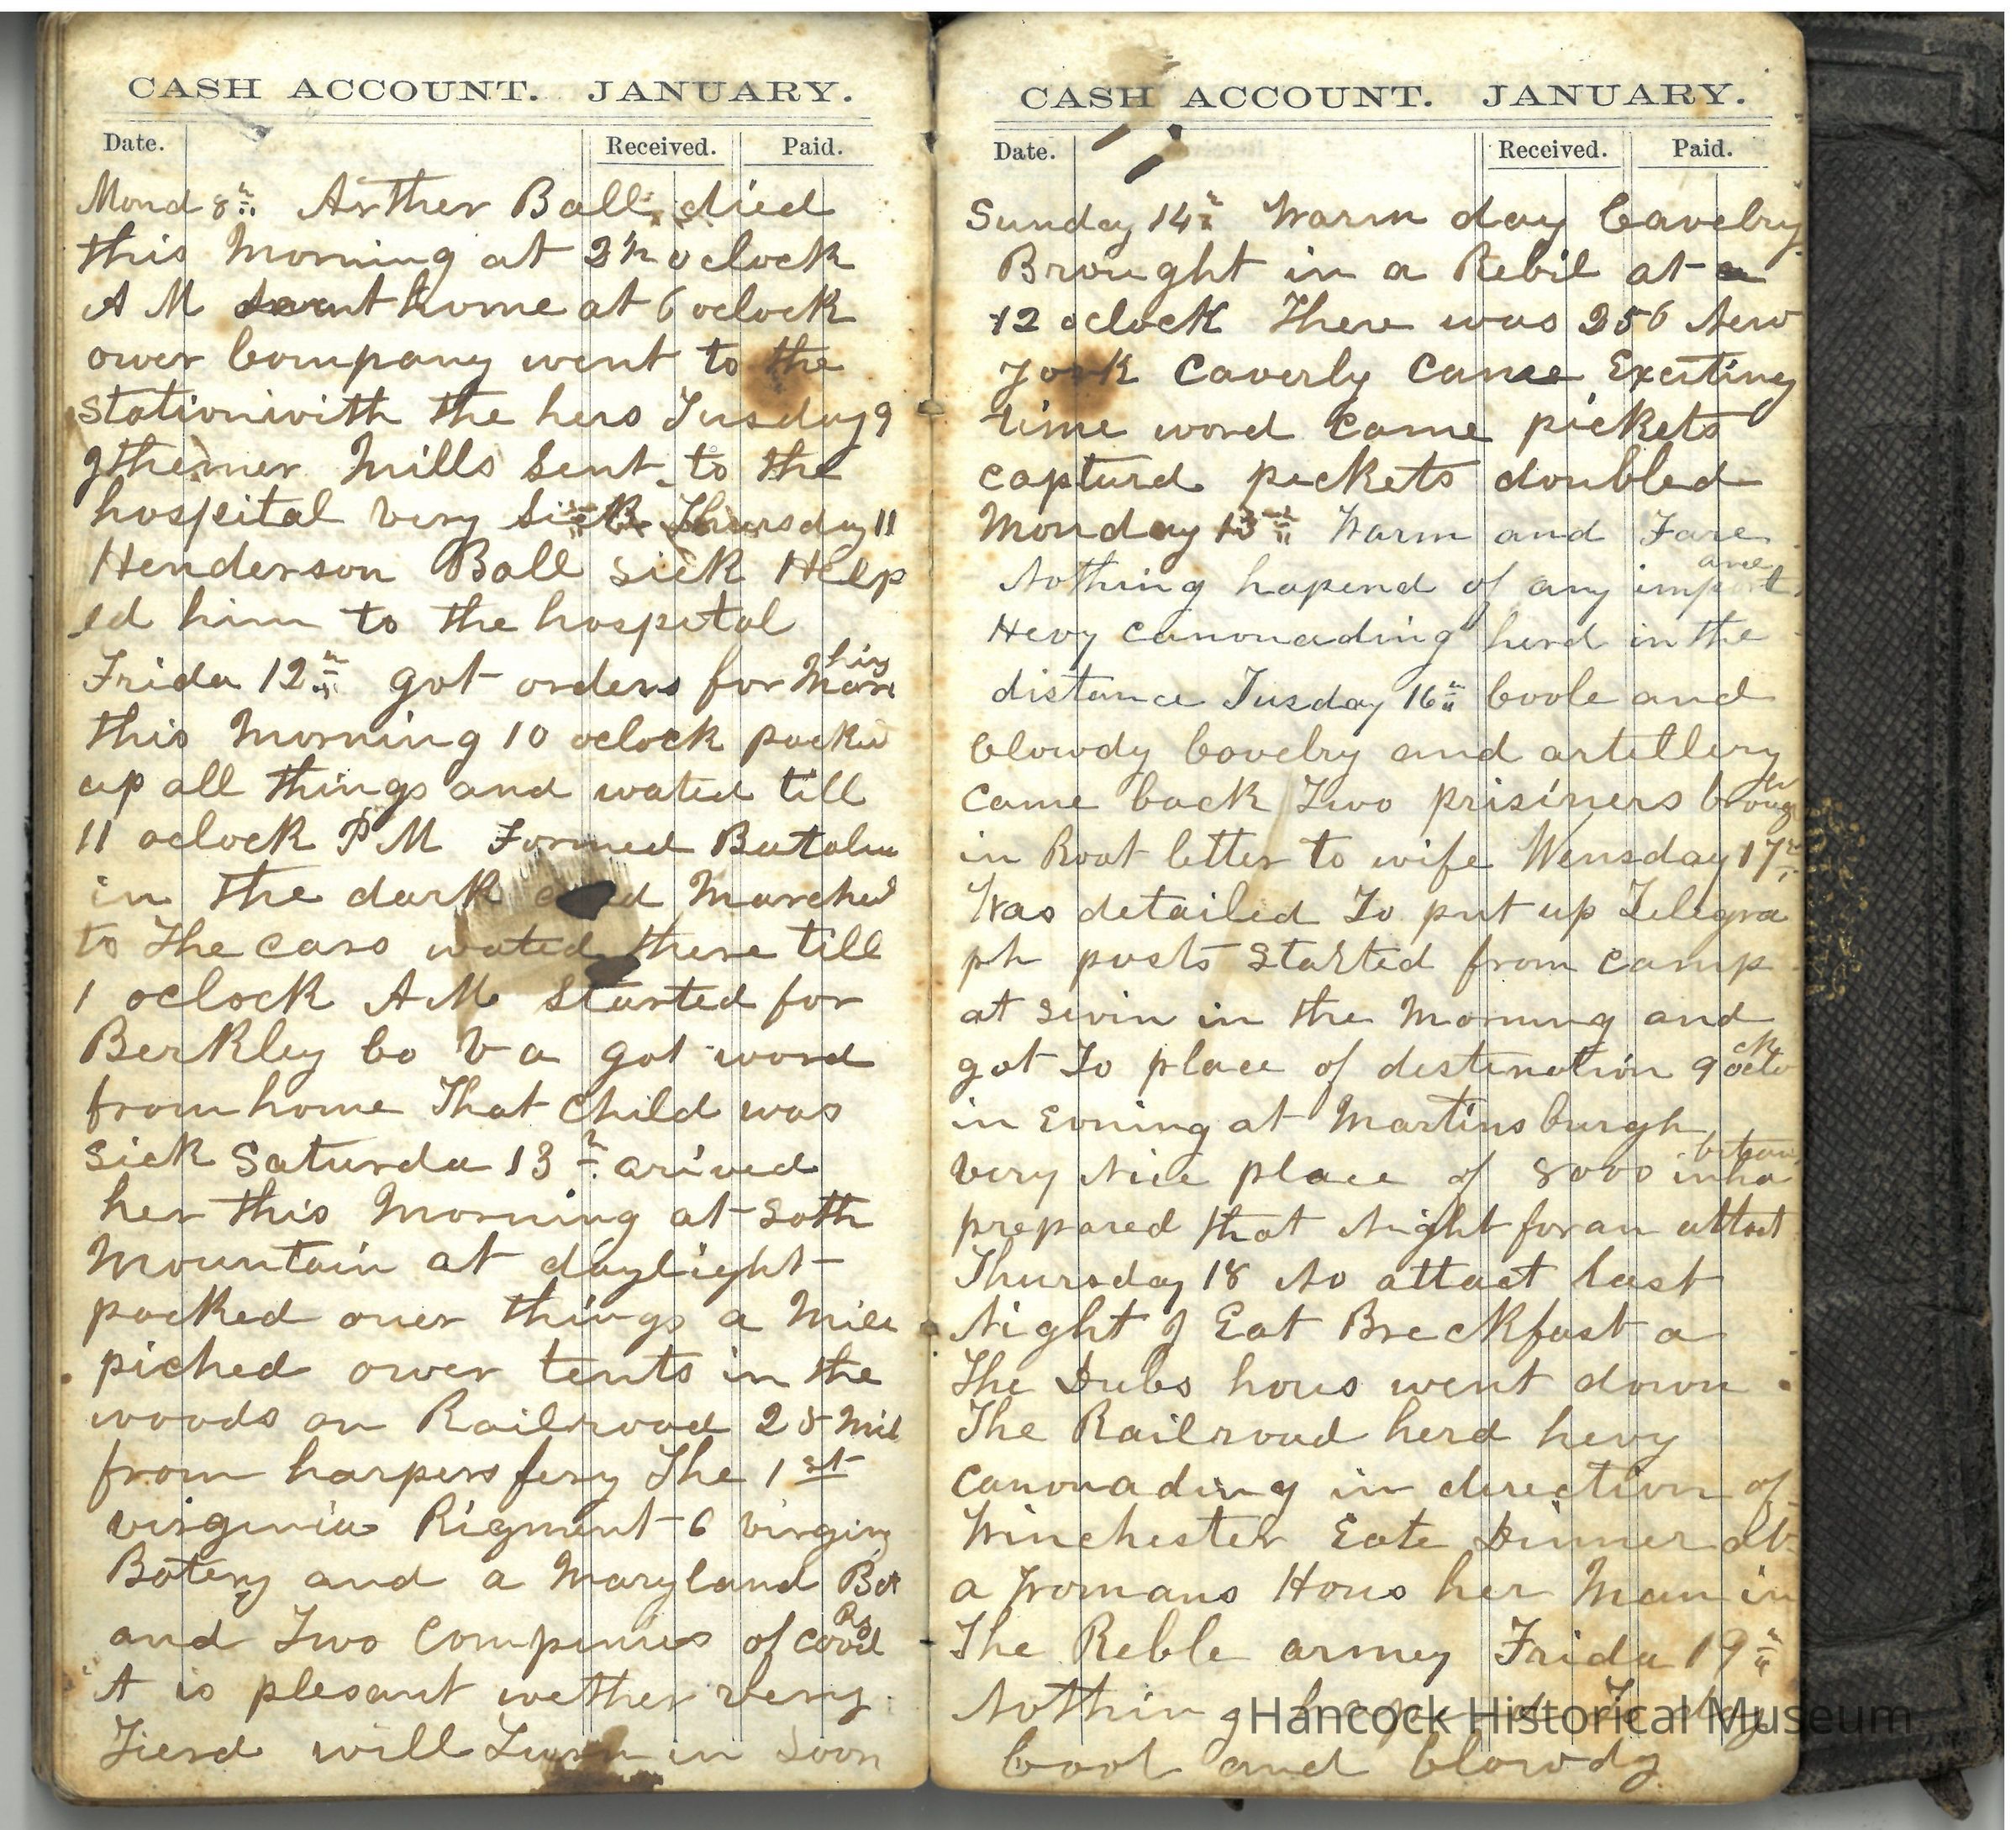 CASH ACCOUNT. JANUARY.
Date. Received. Paid.
Mond 8th Arther Ball died
this Morning at 2 oclock
A M sent home at 6 oclock
ower Company went to the
station with the hers Tusday 9
mer Mills Sent to the
hospital very sick Thursday 11
Henderson Ball sick Help
ed him to the hospital
Frida 12th got orders for Marching
this Morning 10 oclock packed
up all things and wated till
11 oclock P M Formed Batalun
in the dark and Marched
to The cars wated there till
1 oclock A M Started for
Berkley Co Va got word
from home That child was
sick Saturda 13th arived
her this Morning at Soth
Mountain at daylight
packed ower things a Mile
piched ower tents in the
woods on Railroad 25 Mil
from harpers fery The 1st
virginia Rigment 6 virginy
Batery and a Maryland Bat
and Two Companies of
it is plesant wether very
Tierd will Turn in Soon
CASH ACCOUNT. JANUARY.
Date. Received. Paid.
Sunday 14th Warm day Cavelry
Brought in a Rebil at
12 oclock There was 256 New
York Caverly Came Exciting
time word came pickets
capturd pickets doubled
Monday 15th Warm and Fare
Nothing hapend of any importance
Hevy canonading herd in the
distance Tusday 16th Coole and
Clowdy Cavelry and artillery
came back Two prisiners brough
in Roat letter to wife Wensday 17th
Was detailed To put up Telegra
ph posts Started from camp
at sivin in the Morning and
got To place of destination 9 oclock
in Evning at Martinsburgh
very Nice place of 8000 inhabitants
prepared that Night for an attact
Thursday 18 No attact last
Night I Eat Breckfast a
The Dubs hous went down
The Railroad herd hevy
canonading in direction of
Winchester Eate Dinner at
a Womans Hous her Man in
The Reble army Frida 19th
Nothing
Cool and Clowdy
Hancock Historical Museum